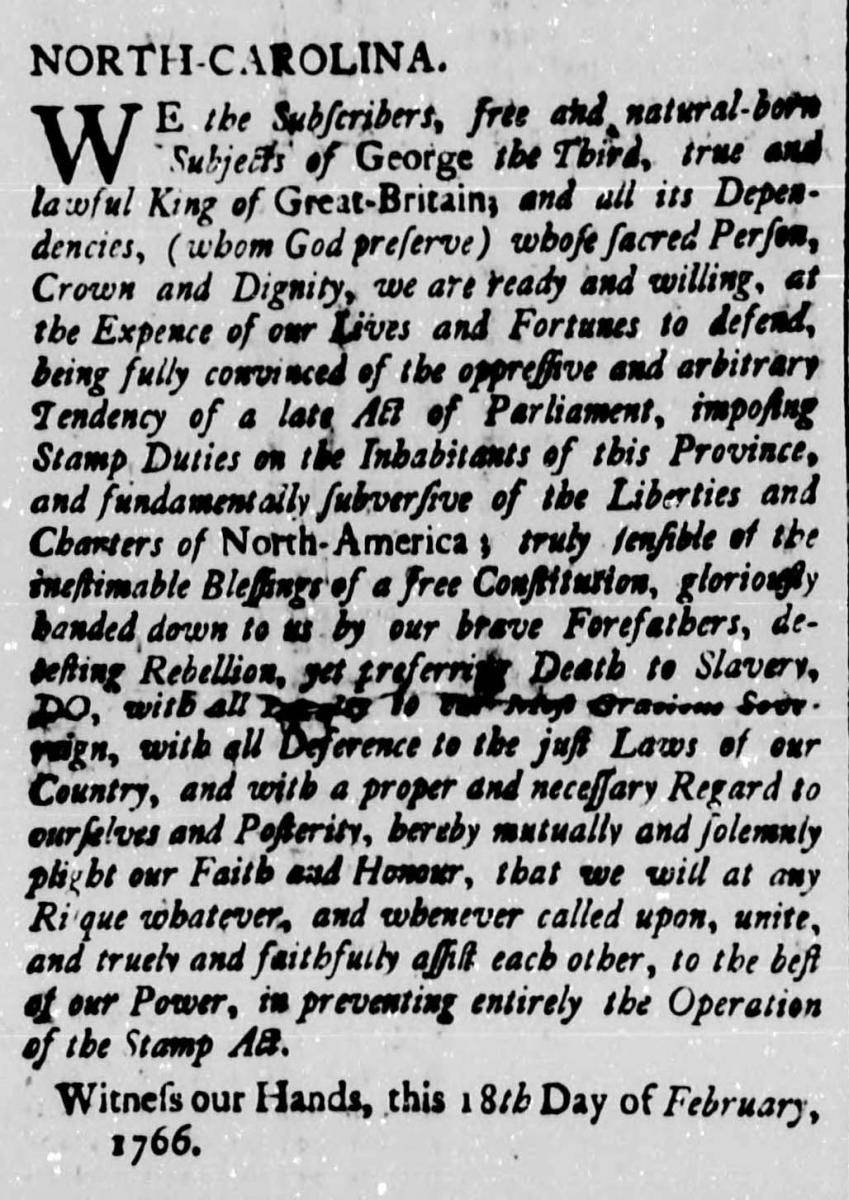 NORTH-CAROLINA.
WE the Subſcribers, free and natural-born
Subjects of George the Third, true and
lawful King of Great-Britain; and all its Depen-
dencies, (whom God preſerve) whoſe ſacred Perſon,
Crown and Dignity, we are ready and willing, at
the Expence of our Lives and Fortunes to defend,
being fully convinced of the oppreſſive and arbitrary
Tendency of a late Act of Parliament, impoſing
Stamp Duties on the Inhabitants of this Province,
and fundamentally ſubverſive of the Liberties and
Charters of North-America; truly ſenſible of the
ineſtimable Bleſſings of a free Conſtitution, gloriouſly
handed down to us by our brave Forefathers, de-
teſting Rebellion, yet preferring Death to Slavery,
DO, with all to our Moſt Gracious Sove-
reign, with all Deference to the juſt Laws of our
Country, and with a proper and neceſſary Regard to
ourſelves and Poſterity, hereby mutually and ſolemnly
plight our Faith and Honour, that we will at any
Riſque whatever, and whenever called upon, unite,
and truely and faithfully aſſiſt each other, to the beſt
of our Power, in preventing entirely the Operation
of the Stamp Act.
Witneſs our Hands, this 18th Day of February,
1766.